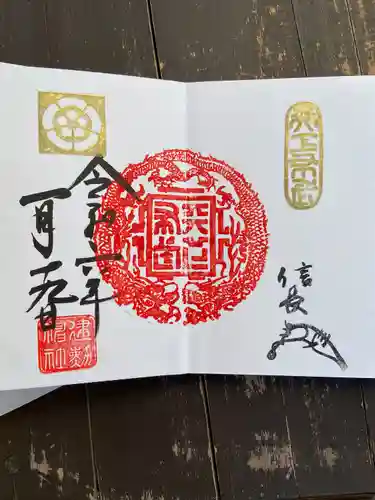 天下布武
信長
天下布武
令和六年
一月十九日
建勲
神社